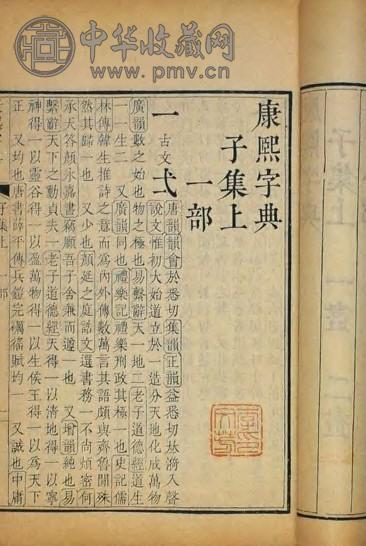 中华收藏网
www.pmv.cn
康熙字典
子集上
一部
一 古文弌
唐韻韻會於悉切集韻正韻益悉切𠀤漪入聲
說文惟初大始道立於一造分天地化成萬物
廣韻數之始也物之極也易繫辭天一地二老子道德經道生
一一生二 又廣韻同也禮樂記禮樂刑政其極一也史記儒
林傳韓生推詩之意而爲內外傳數萬言其語頗與齊魯閒殊
然其歸一也 又少也顏延之庭誥文選書務一不尚煩密何
承天答顏永嘉書竊願吾子舍兼而遵一也 又增韻純也易
繫辭天下之動貞夫一老子道德經天得一以清地得一以寧
神得一以靈谷得一以盈萬物得一以生侯王得一以爲天下
正 又均也唐書薛平傳兵鎧完礪徭賦均一 又誠也中庸